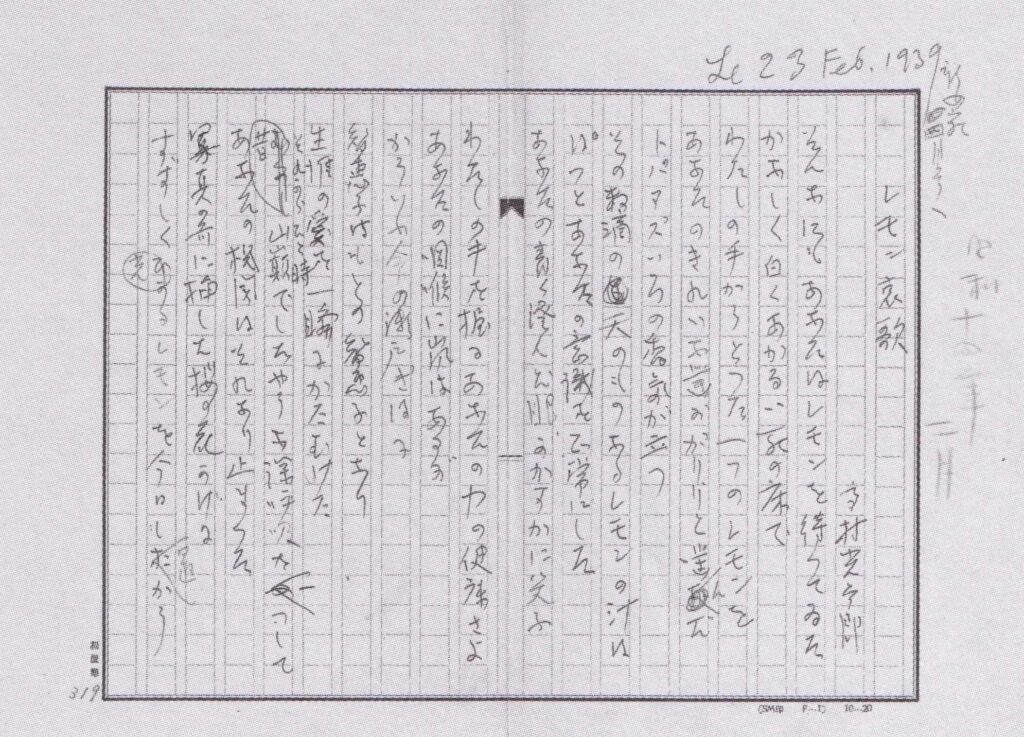 Le 23 Feb. 1939
新女苑
四月号へ
昭和十四年二月
レモン哀歌
高村光太郎
そんなにもあなたはレモンを待つてゐた
かなしく白くあかるい死の床で
わたしの手からとつた一つのレモンを
あなたのきれいな歯ががりりと噛んだ
トパアズいろの香気が立つ
その数滴の天のものなるレモンの汁は
ぱつとあなたの意識を正常にした
あなたの青く澄んだ眼がかすかに笑ふ
わたしの手を握るあなたの力の健康さよ
あなたの咽喉に嵐はあるが
かういふ命の瀬戸ぎはに
智恵子はもとの智恵子となり
生涯の愛を一瞬にかたむけた
それからひと時
昔山巓でしたやうな深呼吸を一つして
あなたの機関はそれなり止まつた
写真の前に挿した桜の花かげに
すずしく光るレモンを今日も置かう
319
10...20